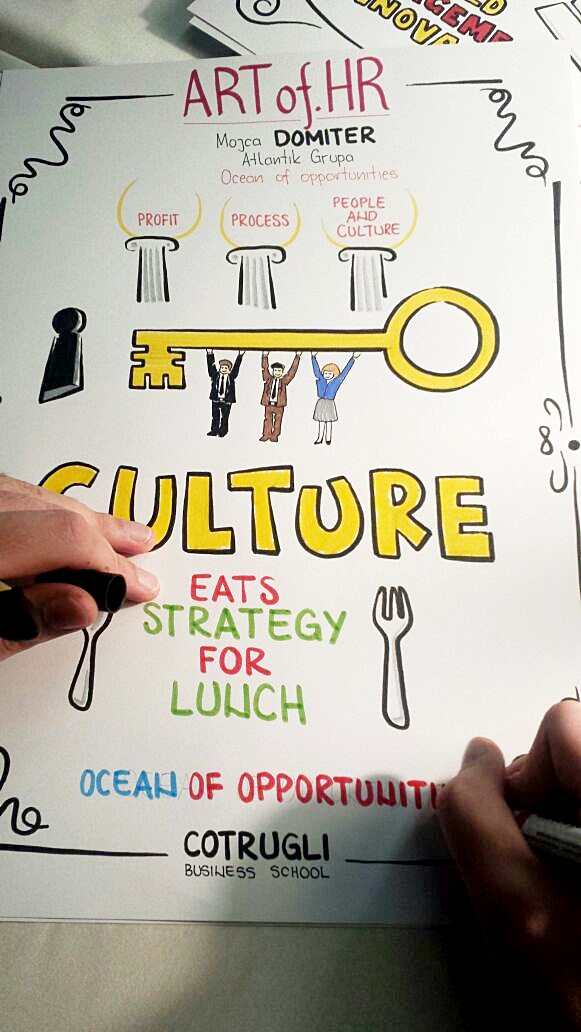 ART of HR
Mojca DOMITER
Atlantik Grupa
Ocean of opportunities
PROFIT
PROCESS
PEOPLE
AND
CULTURE
CULTURE
EATS
STRATEGY
FOR
LUNCH
OCEAN OF OPPORTUNITI
COTRUGLI
BUSINESS SCHOOL